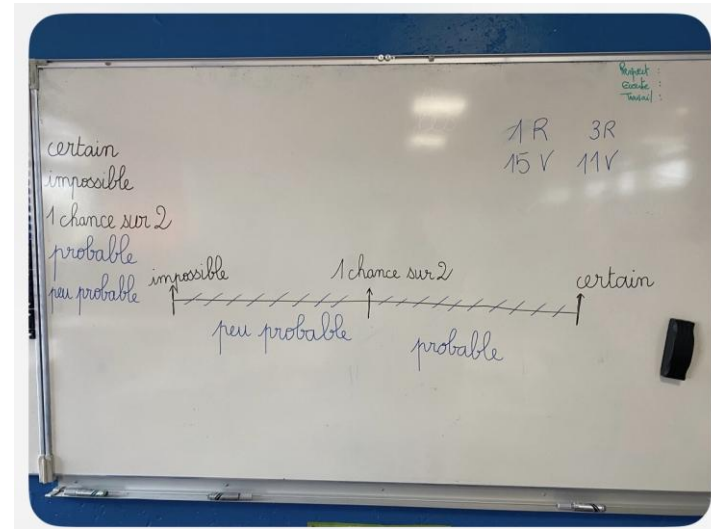 Respect :
écoute :
Travail :
1 R 3R
15 V 11V
certain
impossible
1 chance sur 2
probable
peu probable
impossible 1 chance sur 2 certain
peu probable probable